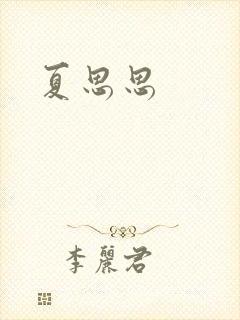 夏思思
李麗君